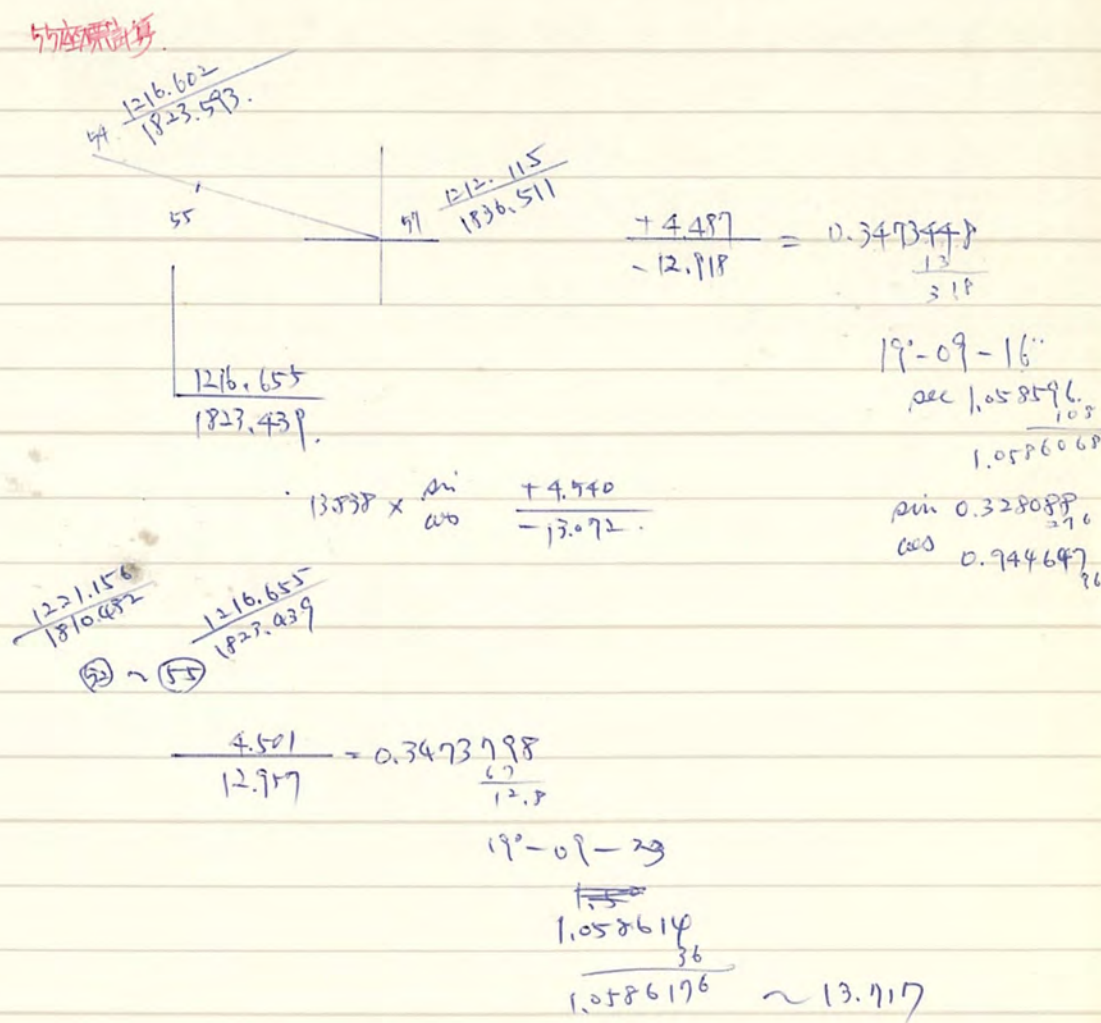 55座標計算.
1216.602
54 1823.593.
55
57 1212.115
1836.511
+4.487
-12.918 = 0.3473448
13
318
19°-09-16"
1216.655
1823.439.
sec 1.058596
108
1.0586068
13.838 × sin
cos
+4.540
-13.072.
sin 0.328088
276
cos 0.944647
1221.156
1810.482
1216.655
1823.439
52 ~ 55
4.501
12.957 = 0.3473798
67
12.8
19°-09-23
1.058614
36
1.0586176 ~ 13.717